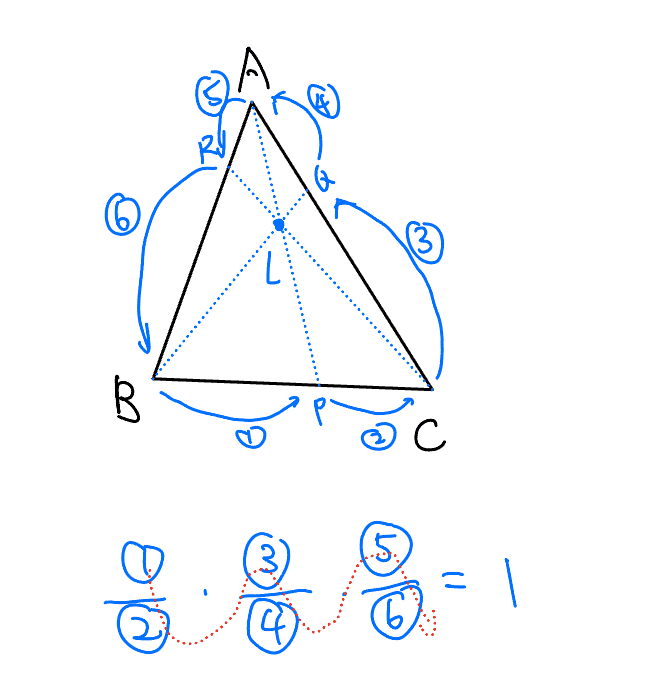 A
⑤ ④
R Q
⑥ ③
L
B P C
① ②
①/② · ③/④ · ⑤/⑥ = 1